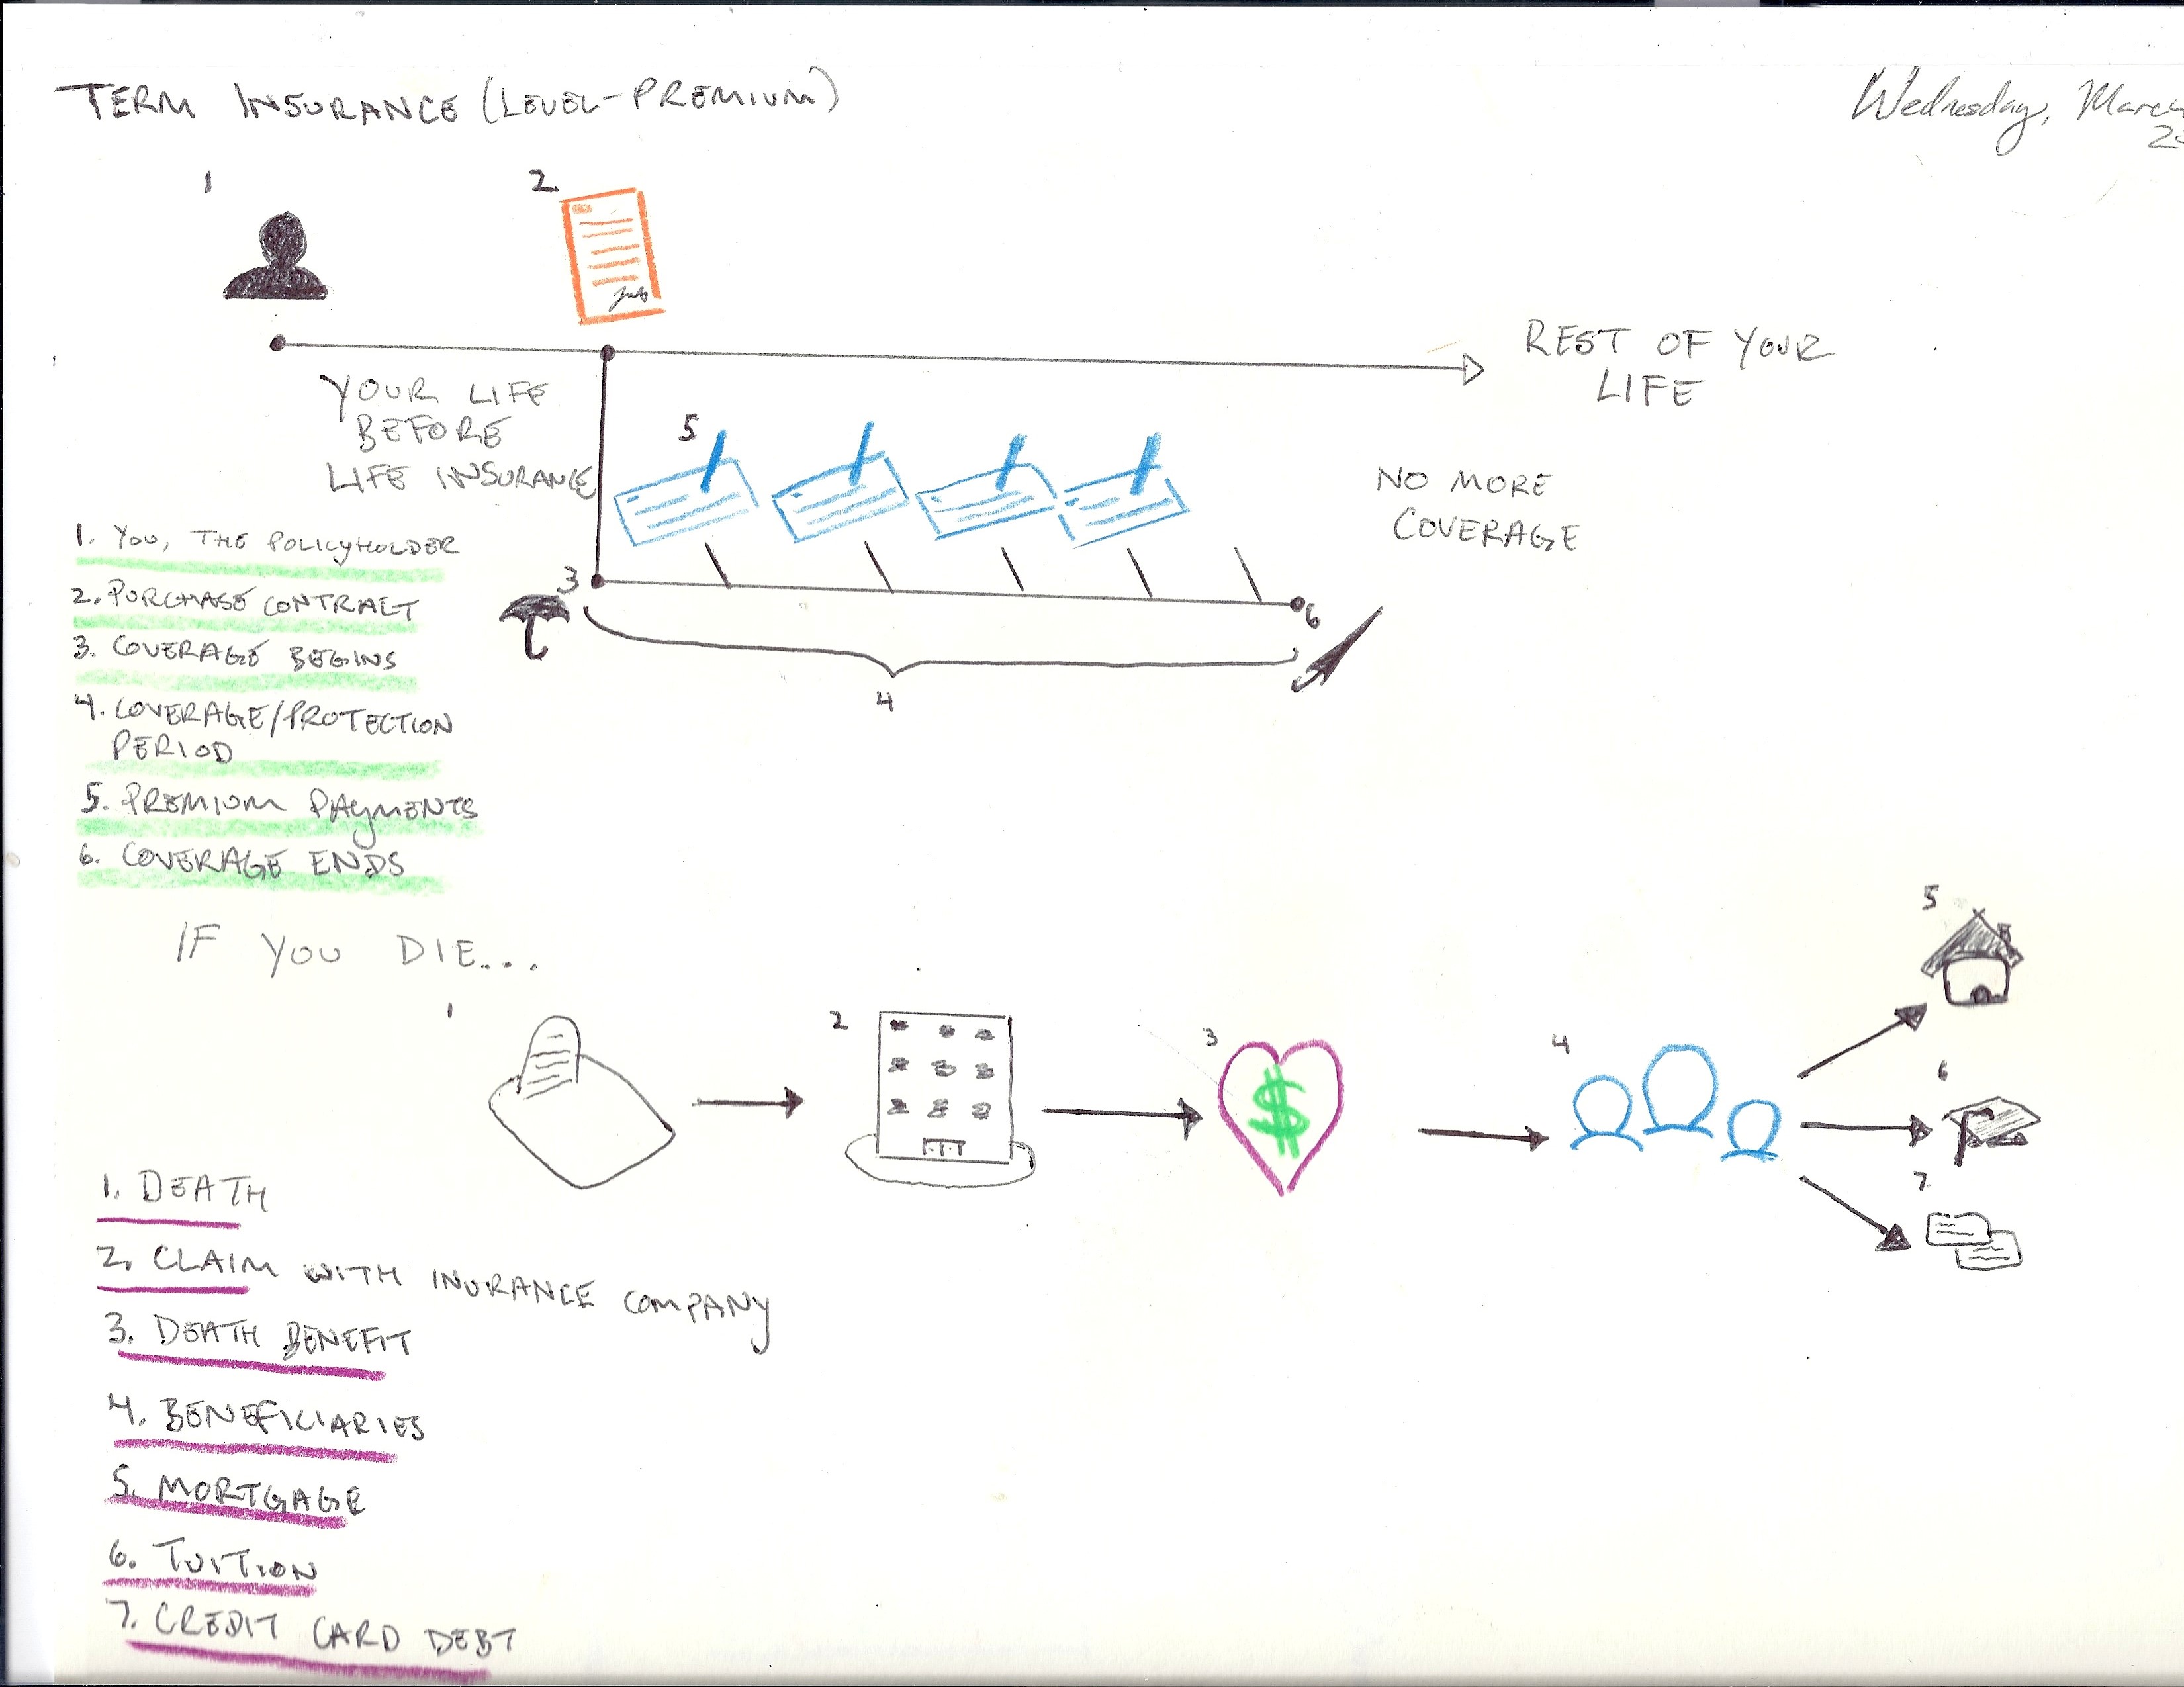 TERM INSURANCE (LEVEL-PREMIUM)
Wednesday, March
1
2
REST OF YOUR
LIFE
YOUR LIFE
BEFORE
LIFE INSURANCE
5
NO MORE
COVERAGE
3
6
4
1. YOU, THE POLICYHOLDER
2. PURCHASE CONTRACT
3. COVERAGE BEGINS
4. COVERAGE/PROTECTION
PERIOD
5. PREMIUM PAYMENTS
6. COVERAGE ENDS
IF YOU DIE...
1
2
3
$
4
5
6
7.
1. DEATH
2. CLAIM WITH INURANCE COMPANY
3. DEATH BENEFIT
4. BENEFICIARIES
5. MORTGAGE
6. TUITION
7. CREDIT CARD DEBT